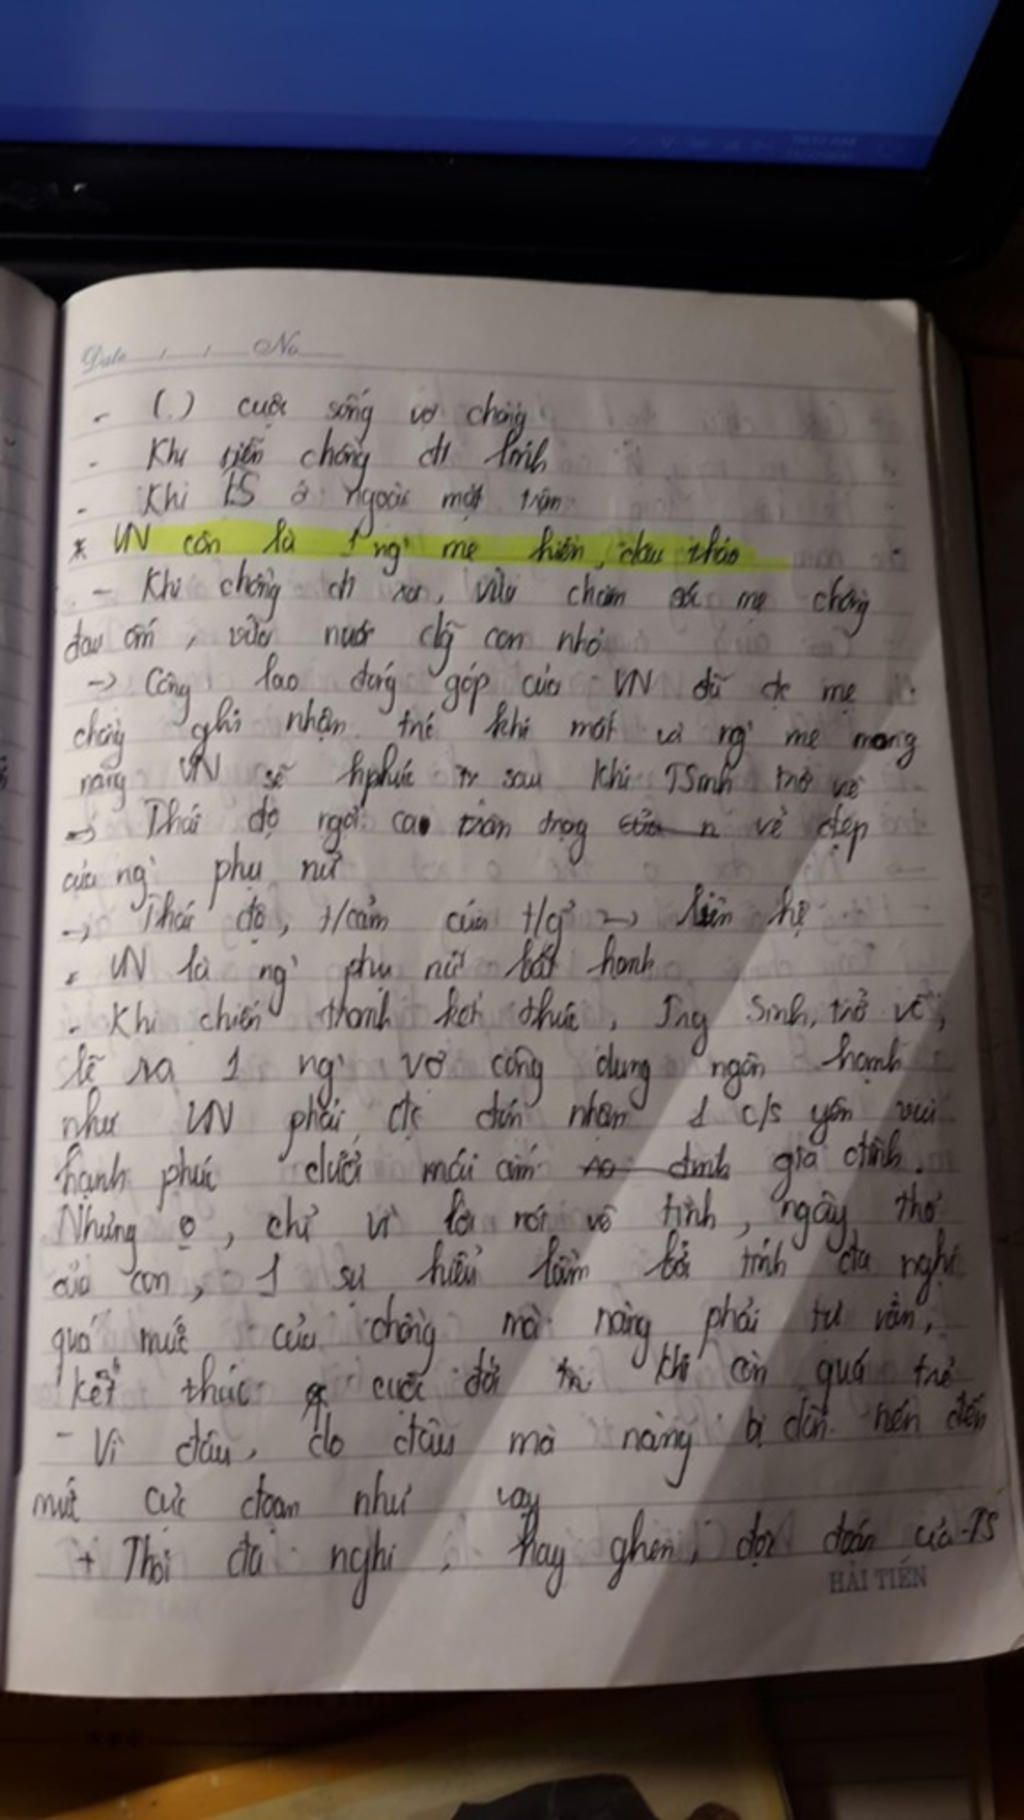 Date / / No
- (.) cuộc sống vợ chồng
- Khi tiễn chồng đi lính
- Khi TS ở ngoài mặt trận
* VN còn là 1 ng` mẹ hiền, dâu thảo
- Khi chồng đi xa, vừa chăm sóc mẹ chồng
đau ốm, vừa nuôi dạy con nhỏ
-> Công lao đóng góp của VN đã đc mẹ
chồng ghi nhận trc khi mất và ng` mẹ mong
nàng VN sẽ hphúc sau khi TSinh trở về
-> Thái độ ngợi ca trân trọng vẻ đẹp
của ng` phụ nữ
-> Thái độ, t/cảm của t/giả -> liên hệ
* VN là ng` phụ nữ bất hạnh
- Khi chiến tranh kết thúc, Trg Sinh, trở về,
lẽ ra 1 ng` vợ công dung ngôn hạnh
như VN phải đc đón nhận 1 c/s yên vui
hạnh phúc dưới mái ấm gia đình.
Nhưng o, chỉ vì lời nói vô tình, ngây thơ
của con, 1 sự hiểu lầm bởi tính đa nghi
quá mức của chồng mà nàng phải tự vẫn,
kết thúc cuộc đời khi còn quá trẻ
- Vì đâu, do đâu mà nàng bị dồn nén đến
mức cực đoan như vậy
+ Thói đa nghi, hay ghen, độc đoán của TS
HẢI TIẾN